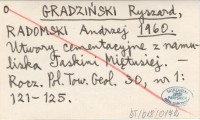 GRADZIŃSKI Ryszard,
RADOMSKI Andrzej 1960.
Utwory cementacyjne z namu-
liska Jaskini Miętusiej. —
Rocz. Pol. Tow. Geol. 30, nr 1:
121-125.